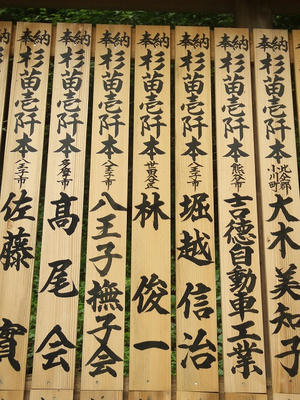 奉納 杉苗壱阡本 比企郡小川町 大木美知子
奉納 杉苗壱阡本 熊谷市 吉徳自動車工業
奉納 杉苗壱阡本 八王子市 堀越信治
奉納 杉苗壱阡本 世田谷区 林俊一
奉納 杉苗壱阡本 八王子市 八王子撫子会
奉納 杉苗壱阡本 多摩市 髙尾会
奉納 杉苗壱阡本 八王子市 佐藤